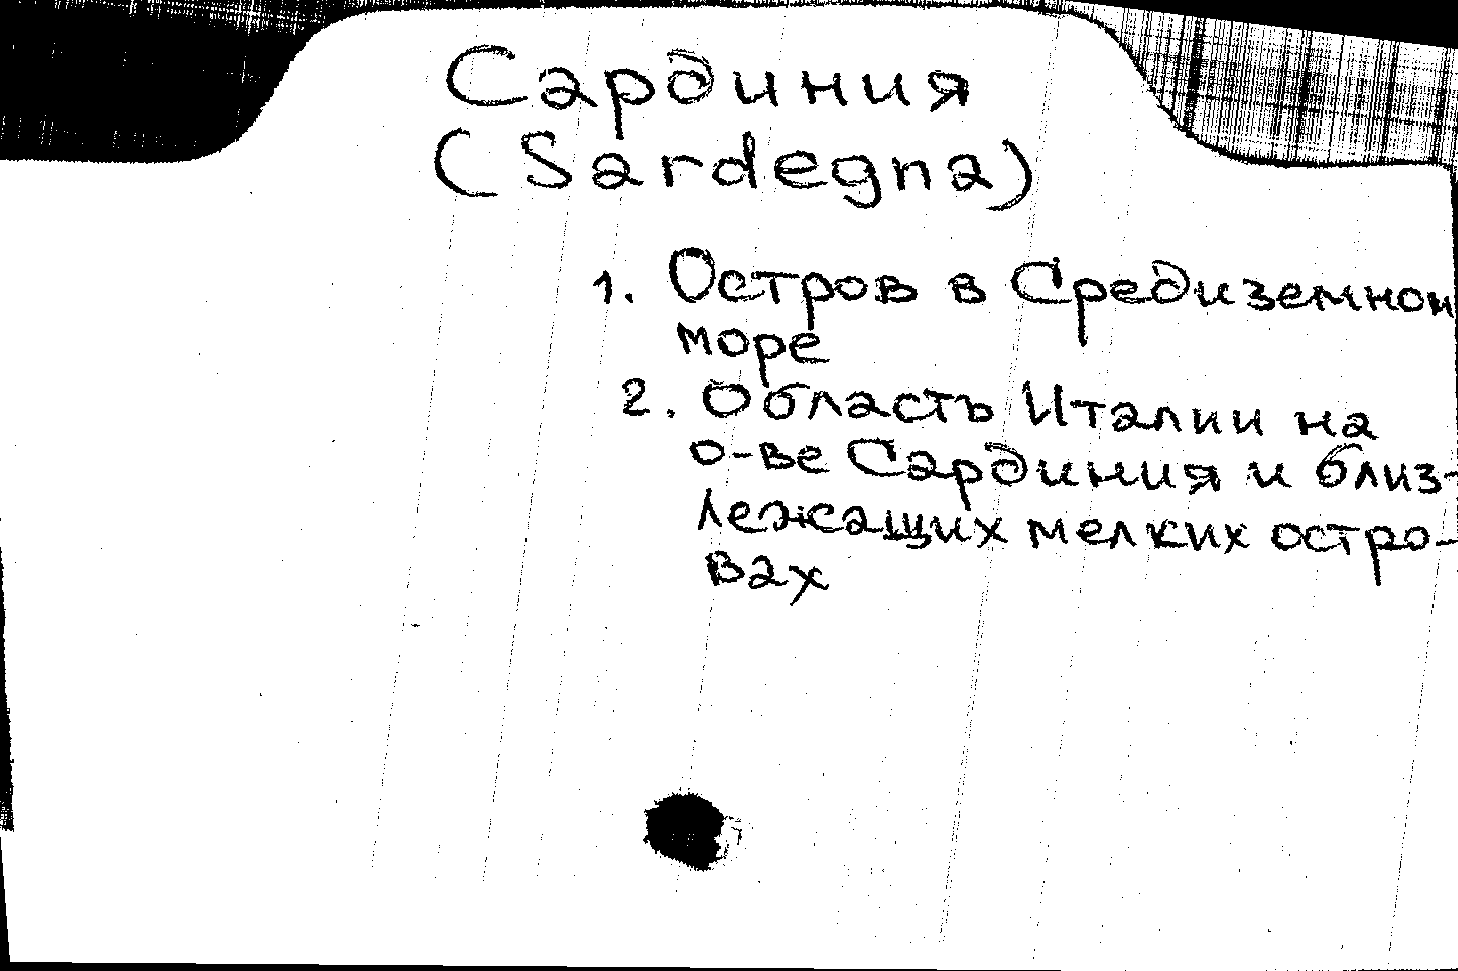 Сардиния
(Sardegna)
1. Остров в Средиземном
море
2. Область Италии на
о-ве Сардиния и близ-
лежащих мелких остро-
вах